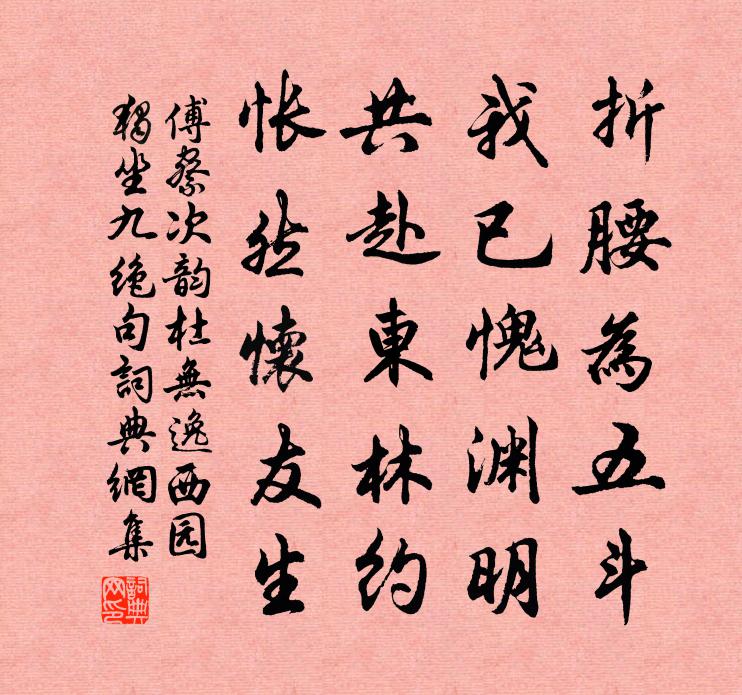 折腰為五斗
我已愧渊明
共赴東林约
悵然懷友生
傅察次韵杜無逸西园
獨坐九绝句詞典網集
詞典
网印